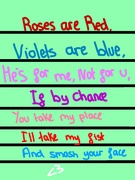 Roses are Red,
Violets are blue,
He's for me, Not for U,
If by Chance
You take my place
I'll take my fist
And smash your face